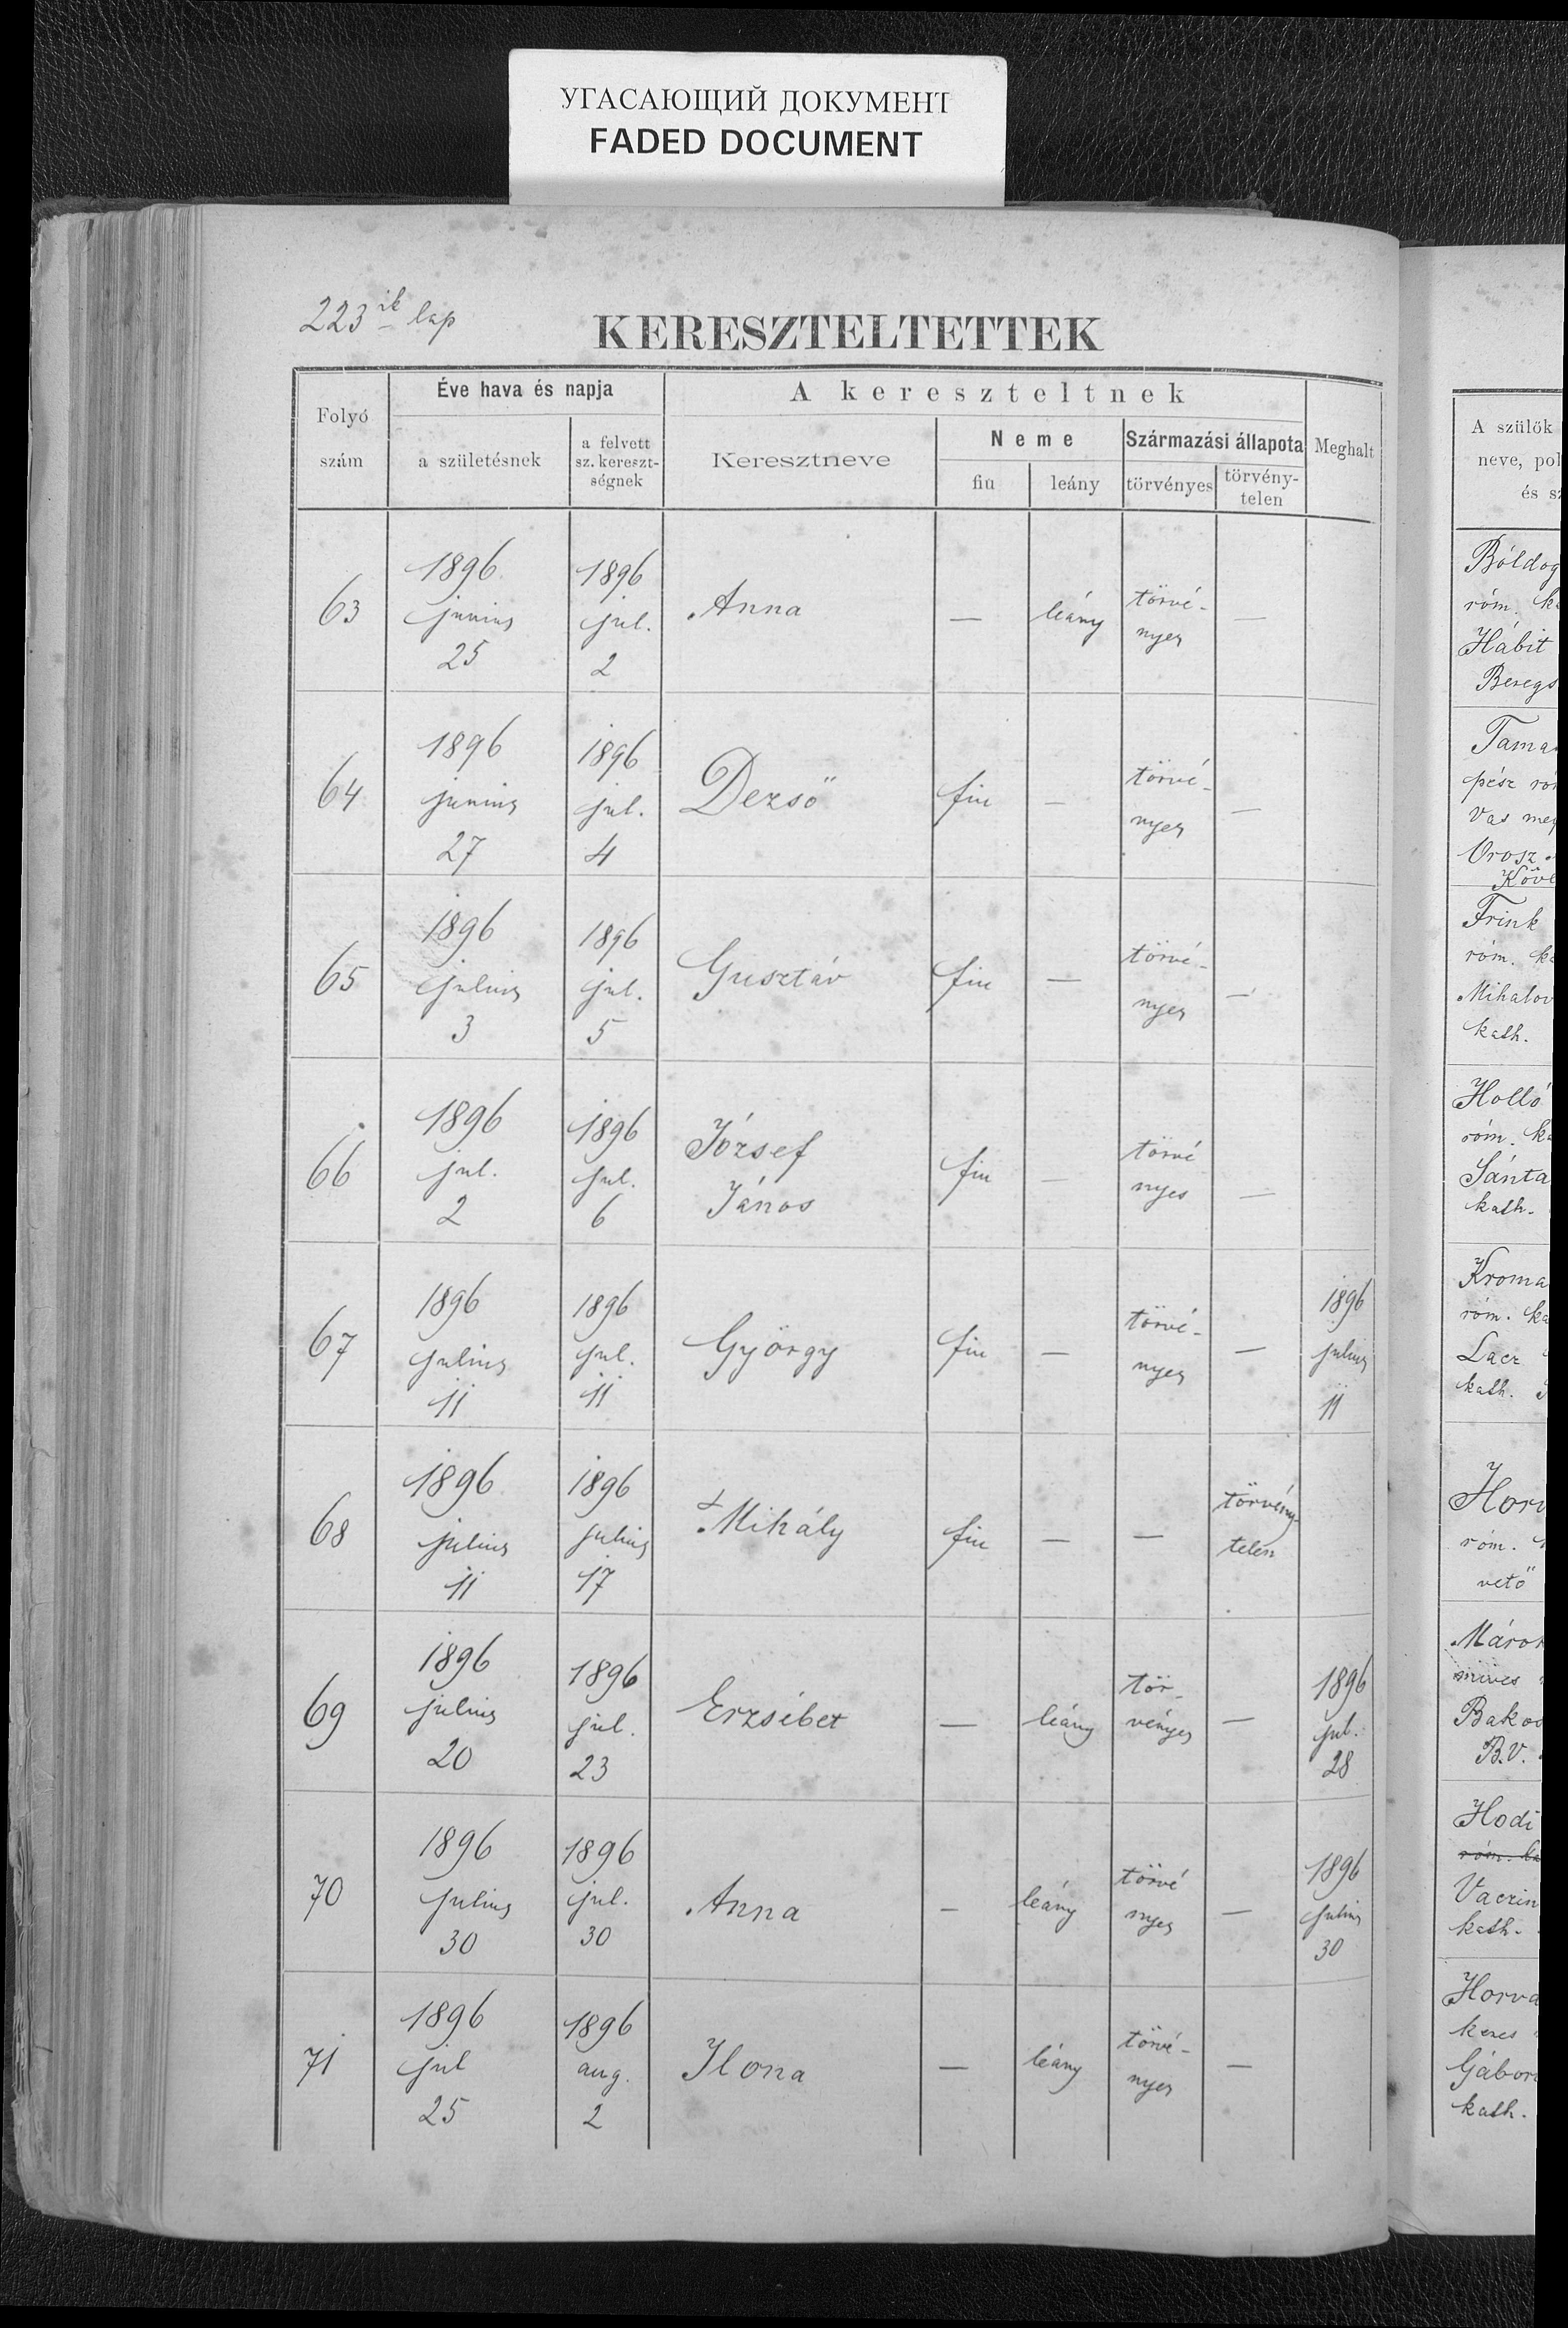 УГАСАЮЩИЙ ДОКУМЕНТ
FADED DOCUMENT
223ik lap
KERESZTELTETTEK
Folyó szám
Éve hava és napja
a születésnek
a felvett sz. kereszt-ségnek
A kereszteltnek
Keresztneve
Neme
fiu
leány
Származási állapota
törvényes
törvény-telen
Meghalt
63 1896 junius 25 1896 jul. 2 Anna — leány törvé-nyes —
64 1896 junius 27 1896 jul. 4 Dezső fiu — törvé-nyes —
65 1896 julius 3 1896 jul. 5 Gusztáv fiu — törvé-nyes —
66 1896 jul. 2 1896 jul. 6 József János fiu — törvé nyes —
67 1896 julius 11 1896 jul. 11 György fiu — törvé-nyes — 1896 julius 11
68 1896 julius 11 1896 julius 17 Mihály fiu — — törvény-telen
69 1896 julius 20 1896 jul. 23 Erzsébet — leány tör-vényes — 1896 jul. 28
70 1896 julius 30 1896 jul. 30 Anna — leány törvé nyes — 1896 julius 30
71 1896 jul 25 1896 aug. 2 Ilona — leány törvé-nyes —
A szülők
neve, pol
és sz
Bóldog
róm. ka
Hábit
Beregs
Tama
pész ró
Vas meg
Orosz
Köve
Frink
róm. ka
Mihalov
kath.
Holló
róm. ka
Sánta
kath.
Kroma
róm. ka
Lacz
kath.
Horv
róm.
vető
Márok
mives
Bakos
B.V.
Hodi
róm. ka
Vaczin
kath.
Horva
keres
Gábor
kath.